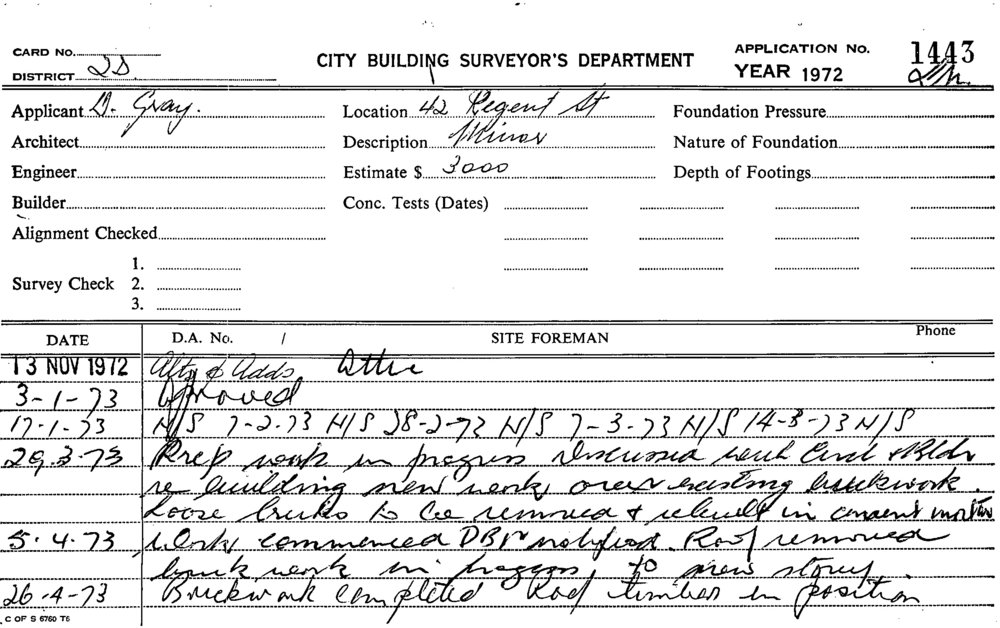 CARD NO.
DISTRICT
CITY BUILDING SURVEYOR'S DEPARTMENT
APPLICATION NO. 1443
YEAR 1972
Applicant D. Gray.
Location 42 Regent St
Foundation Pressure
Architect
Description Minor
Nature of Foundation
Engineer
Estimate $ 3000
Depth of Footings
Builder
Conc. Tests (Dates)
Alignment Checked
Survey Check
1.
2.
3.
DATE
D.A. No. /
SITE FOREMAN
Phone
13 NOV 1972 Alts & Adds Attic
3-1-73 Approved
17-1-73 N/S 7-2-73 N/S 28-2-73 N/S 7-3-73 N/S 14-3-73 N/S
29.3.73 Prep work in progress Discussed with & Bldr
re building new work over existing brickwork.
Loose bricks to be removed & rebuilt in cement mortar
5.4.73 Work commenced notified. Roof removed
brick work in progress to new storey.
26-4-73 Brickwork completed Roof timber in position
C OF S 6760 T6